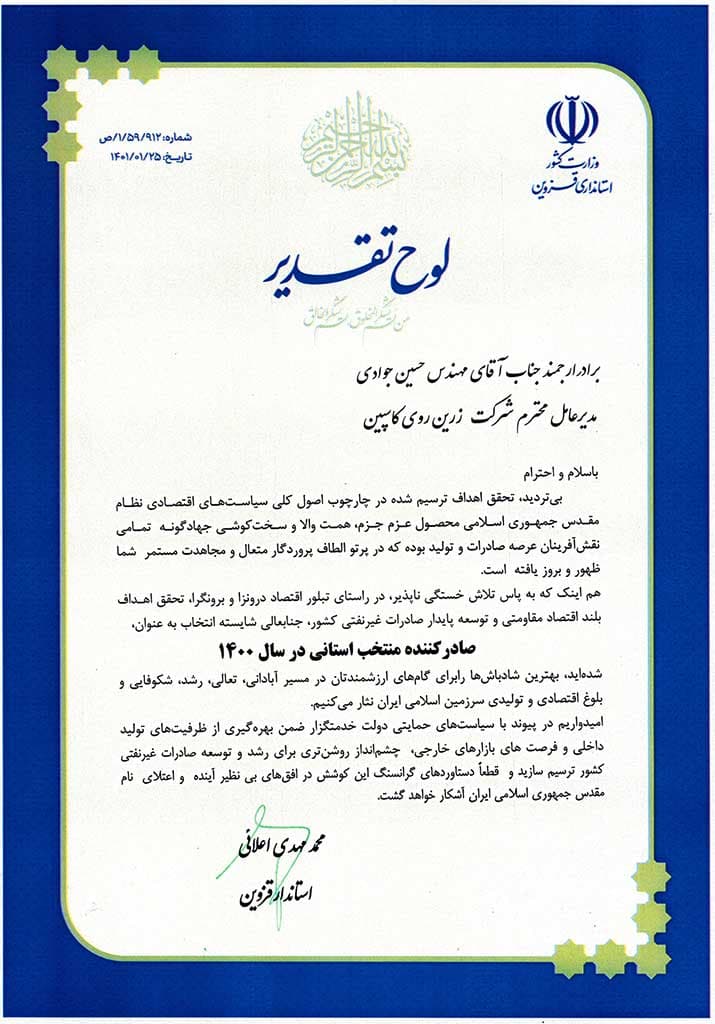 بسم الله الرحمن الرحیم
وزارت کشور
استانداری قزوین
شماره: ۱/۵۹/۹۱۲/ص
تاریخ: ۱۴۰۱/۰۱/۲۵
لوح تقدیر
من لم یشکر المخلوق لم یشکر الخالق
برادر ارجمند جناب آقای مهندس حسین جوادی
مدیرعامل محترم شرکت زرین روی کاسپین
باسلام و احترام
بی‌تردید، تحقق اهداف ترسیم شده در چارچوب اصول کلی سیاست‌های اقتصادی نظام
مقدس جمهوری اسلامی محصول عزم جزم، همت والا و سخت‌کوشی جهادگونه تمامی
نقش‌آفرینان عرصه صادرات و تولید بوده که در پرتو الطاف پروردگار متعال و مجاهدت مستمر شما
ظهور و بروز یافته است.
هم اینک که به پاس تلاش خستگی ناپذیر، در راستای تبلور اقتصاد درونزا و برونگرا، تحقق اهداف
بلند اقتصاد مقاومتی و توسعه پایدار صادرات غیرنفتی کشور، جنابعالی شایسته انتخاب به عنوان،
صادرکننده منتخب استانی در سال ۱۴۰۰
شده‌اید، بهترین شادباش‌ها رابرای گام‌های ارزشمندتان در مسیر آبادانی، تعالی، رشد، شکوفایی و
بلوغ اقتصادی و تولیدی سرزمین اسلامی ایران نثار می‌کنیم.
امیدواریم در پیوند با سیاست‌های حمایتی دولت خدمتگزار ضمن بهره‌گیری از ظرفیت‌های تولید
داخلی و فرصت های بازارهای خارجی، چشم‌انداز روشن‌تری برای رشد و توسعه صادرات غیرنفتی
کشور ترسیم سازید و قطعاً دستاوردهای گرانسنگ این کوشش در افق‌های بی نظیر آینده و اعتلای نام
مقدس جمهوری اسلامی ایران آشکار خواهد گشت.
محمد مهدی اعلائی
استاندار قزوین